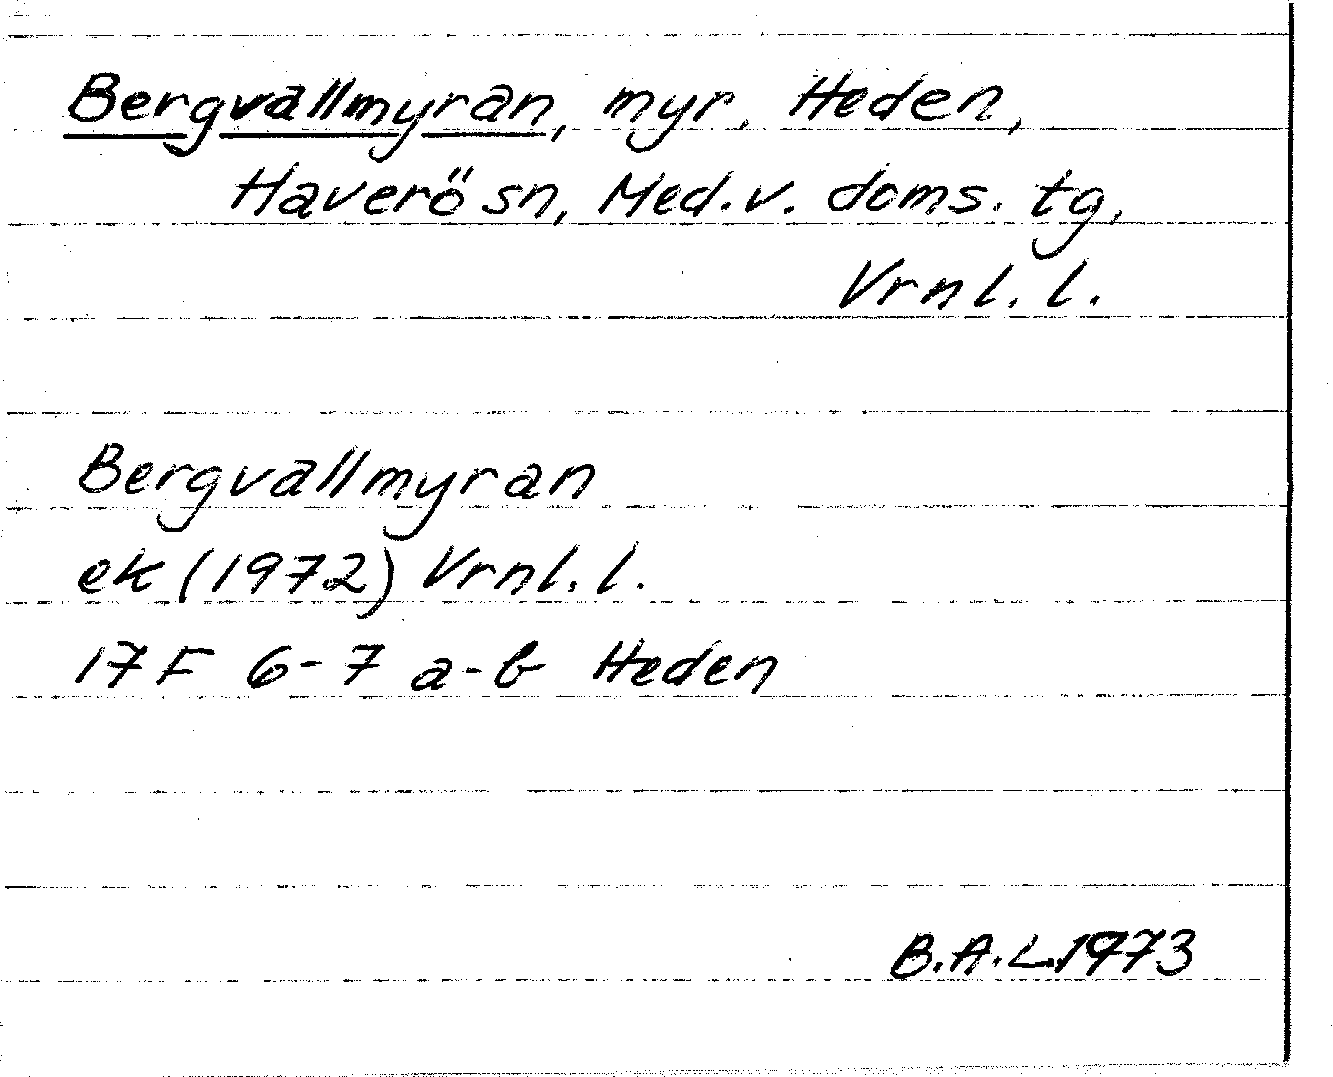 Bergvallmyran, myr, Heden,
Haverö sn, Med. v. doms. tg,
Vrnl. l.
Bergvallmyran
ek (1972) Vrnl. l.
17 F 6-7 a-b Heden
B.A.L. 1973